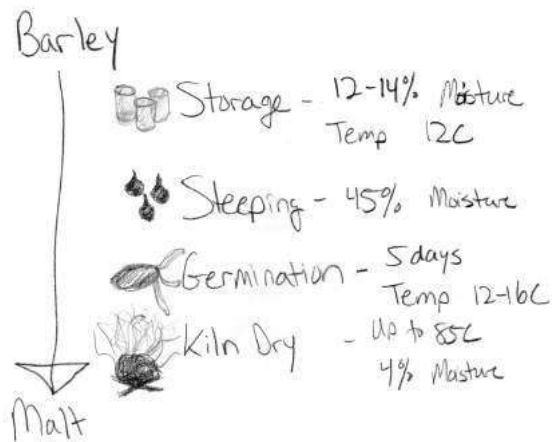 Barley
Storage - 12-14% Moisture
Temp 12C
Steeping - 45% Moisture
Germination - 5 days
Temp 12-16C
Kiln Dry - Up to 85C
4% Moisture
Malt